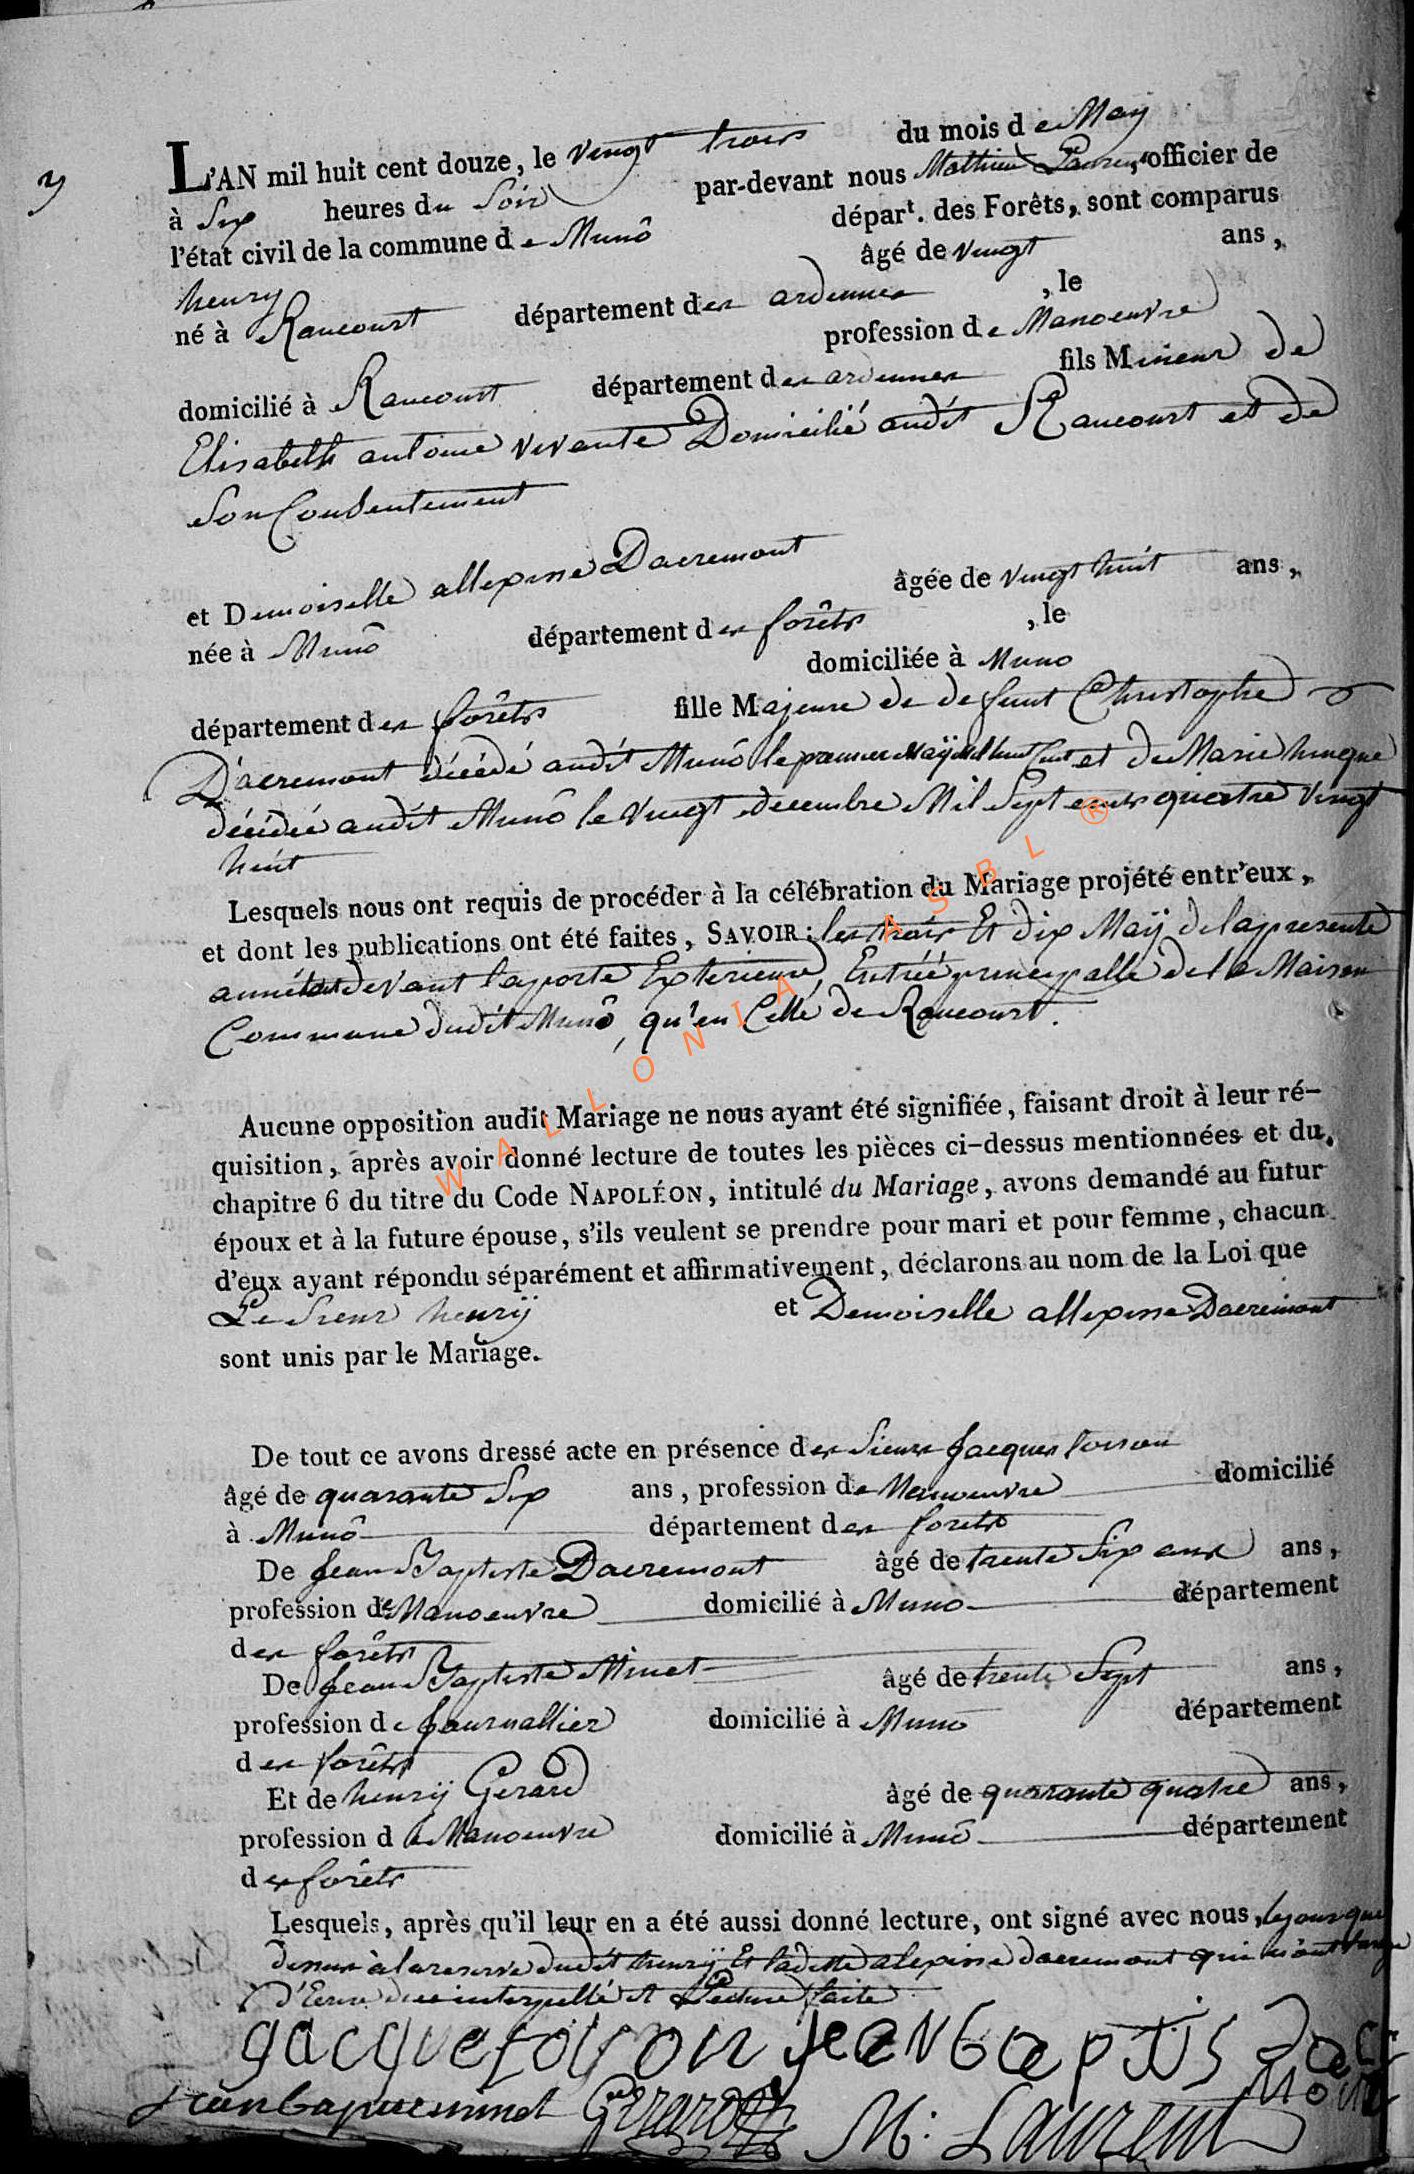 L'AN mil huit cent douze, le vingt trois du mois de May
à Six heures du Soir par-devant nous Mathieu Laurent, officier de
l'état civil de la commune de Munô départ. des Forêts, sont comparus
henry âgé de vingt ans,
né à Raucourt département des ardennes , le
profession de Manoeuvre
domicilié à Raucourt département des ardennes fils Mineur de
Elisabeth antoine vivante Domicilié audit Raucourt et de
Son Consentement
et Demoiselle allexisse Dacremont âgée de vingt huit ans,
née à Munô département des forêts , le
domiciliée à Muno
département des forêts fille Majeure de defunt Christophe
Dacremont décédé audit Munô le premier Maÿ Mil huit Cent et de Marie
décédée audit Munô le vingt decembre Mil Sept cents quatre vingt
huit
Lesquels nous ont requis de procéder à la célébration du Mariage projété entr'eux,
et dont les publications ont été faites, SAVOIR: les trois Et dix Maÿ de la presente
année tant devant la porte Exterieure, Entrée principalle de la Maison
Commune dudit Munô, qu'en Celle de Raucourt.
Aucune opposition audit Mariage ne nous ayant été signifiée, faisant droit à leur ré-
quisition, après avoir donné lecture de toutes les pièces ci-dessus mentionnées et du
chapitre 6 du titre du Code NAPOLÉON, intitulé du Mariage, avons demandé au futur
époux et à la future épouse, s'ils veulent se prendre pour mari et pour femme, chacun
d'eux ayant répondu séparément et affirmativement, déclarons au nom de la Loi que
Le Sieur henrÿ et Demoiselle allexisse Dacremont
sont unis par le Mariage.
De tout ce avons dressé acte en présence des Sieurs Jacques
âgé de quarante Six ans, profession de Manoeuvre domicilié
à Munô département des forets
De Jean Baptiste Dacremont âgé de trente Six ans ans,
profession de Manoeuvre domicilié à Muno département
des forêts
De Jean Baptiste Minet âgé de trente Sept ans,
profession de Journallier domicilié à Muno département
des forêts
Et de henrÿ Gerard âgé de quarante quatre ans,
profession de Manoeuvre domicilié à Munô département
des forêts
Lesquels, après qu'il leur en a été aussi donné lecture, ont signé avec nous, les jour que
dessus à la reserve dudit henrÿ Et laditte alexisse dacremont qui n'ont
d'Ecrire interpellé et Lecture faite
jean baptis dac
jeanbaptiseminet Gerard M: Laurent
WALLONIA ASBL ®